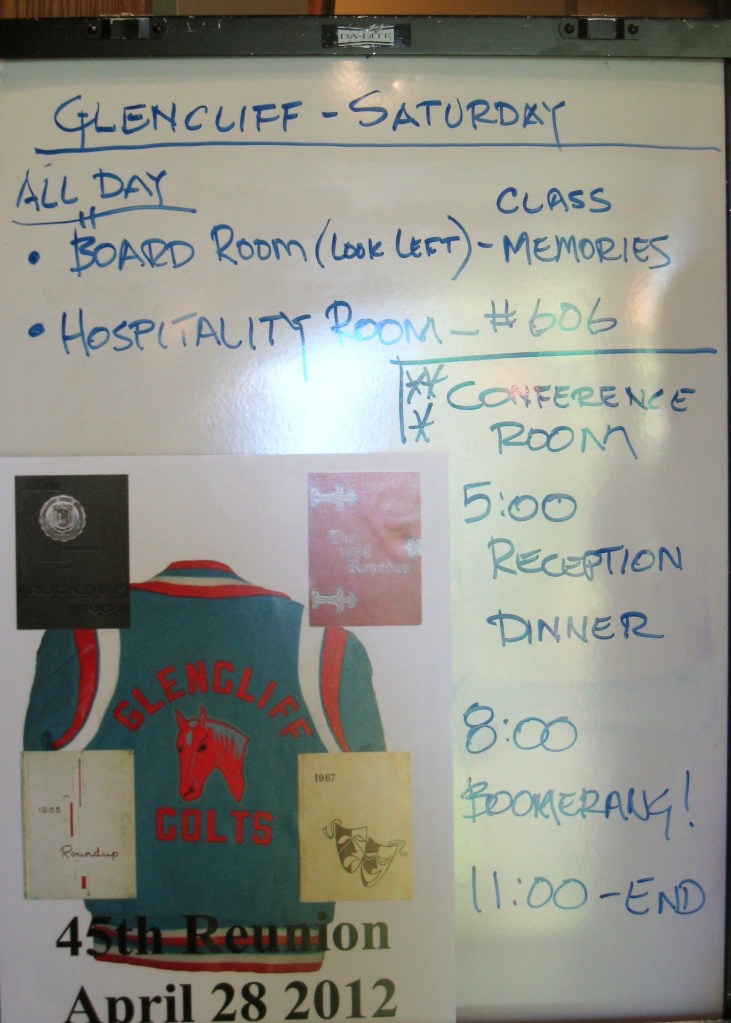 DA-LITE
GLENCLIFF - SATURDAY
ALL DAY
CLASS
• BOARD ROOM (LOOK LEFT) - MEMORIES
• HOSPITALITY ROOM - # 606
*** CONFERENCE
ROOM
5:00
RECEPTION
DINNER
8:00
BOOMERANG!
11:00 - END
The
Roundup
GLENCLIFF
COLTS
1965
Roundup
1967
45th Reunion
April 28 2012